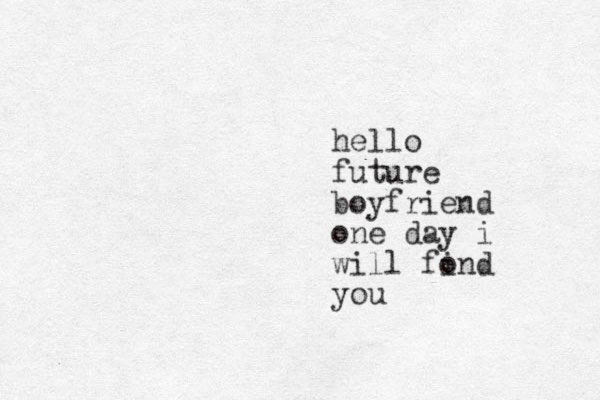 hello
future
boyfriend
one day i
will find
you